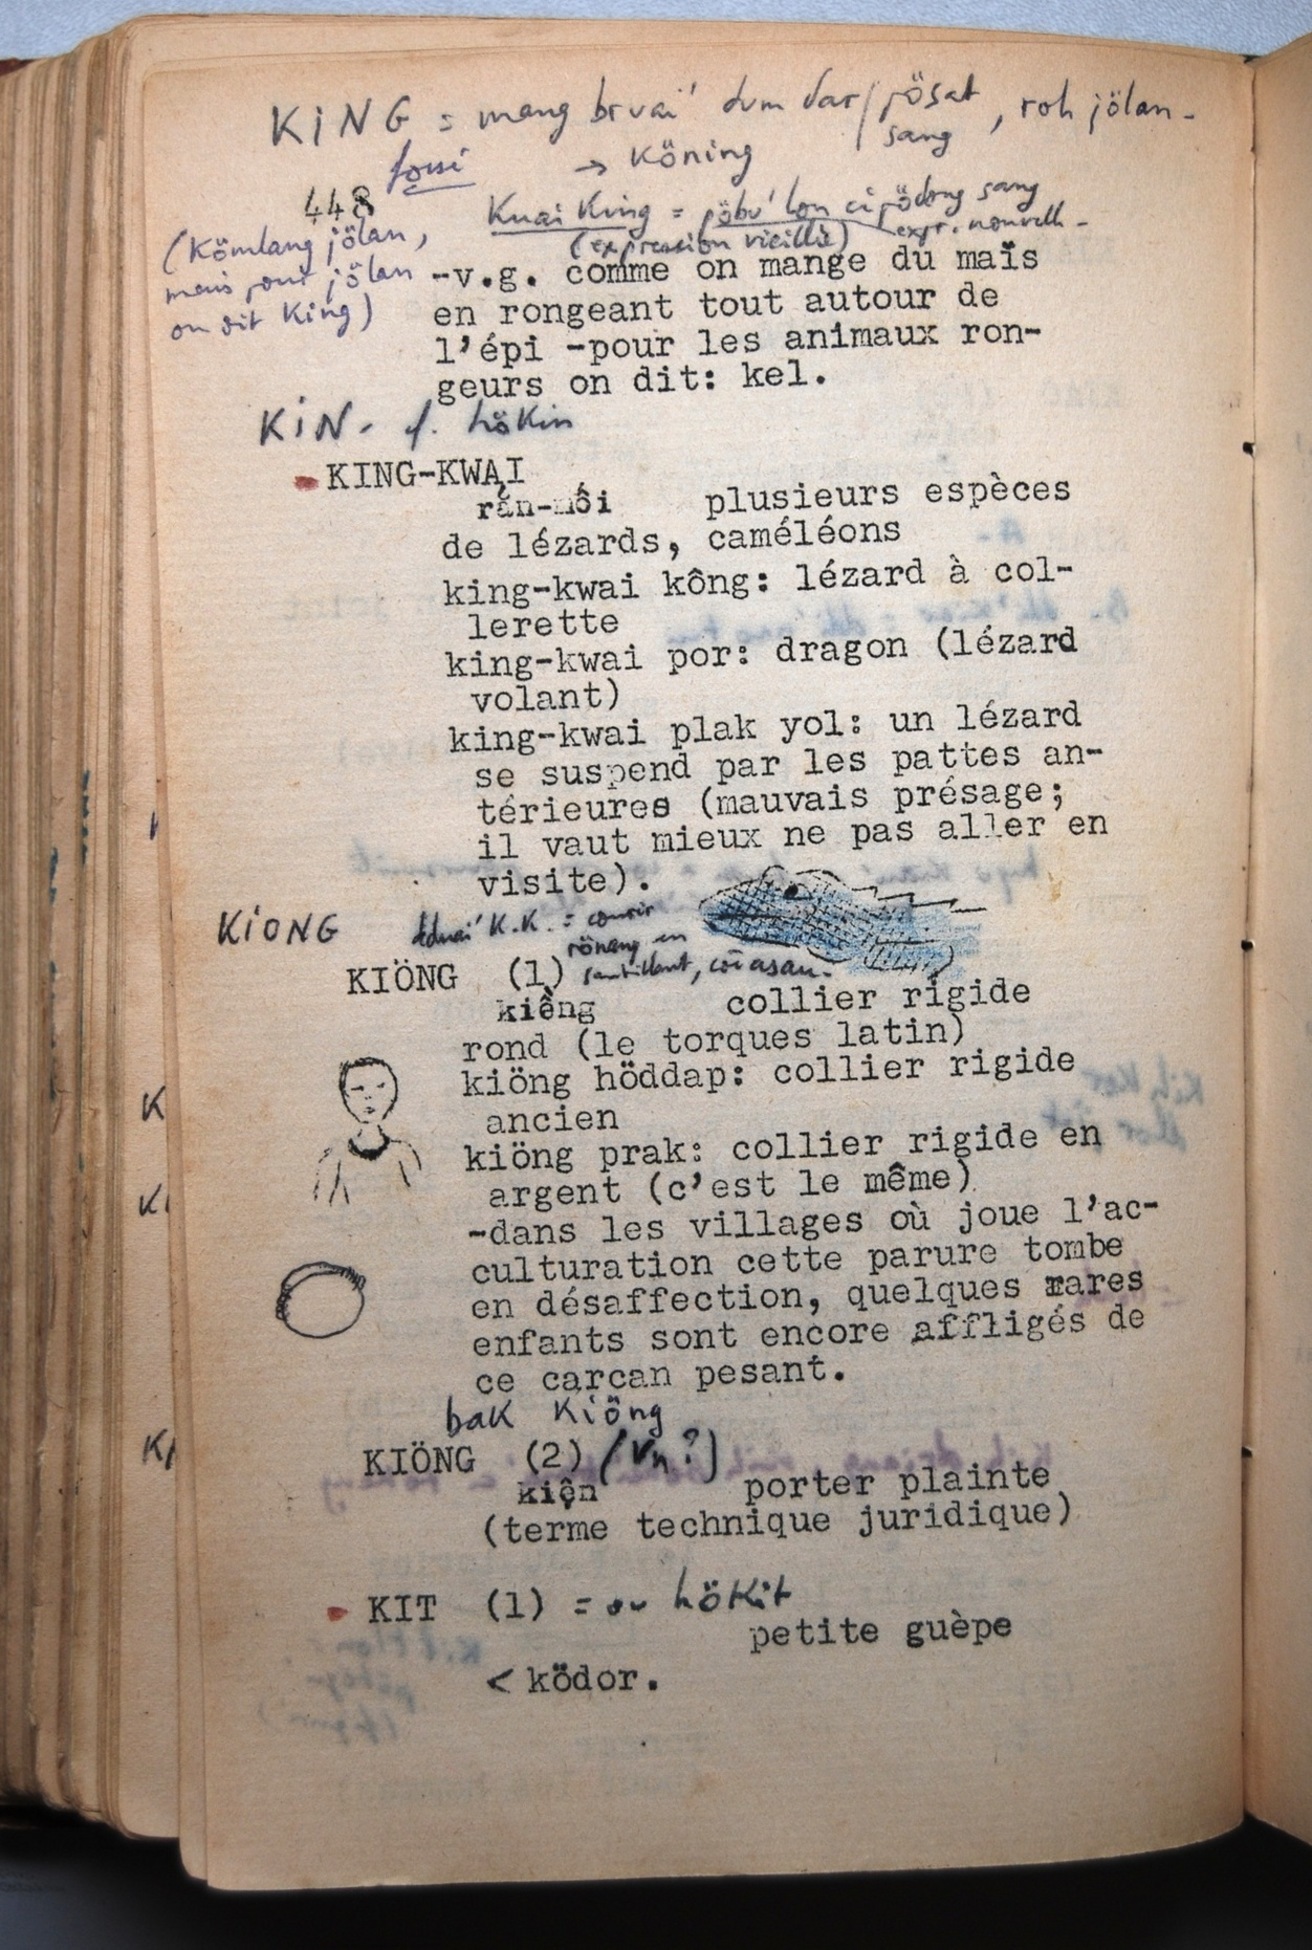 KING = mang bruai' dum dar / pösat, roh jölan -
sang
→ Köning
448
Kuai King = pöbu' lon ei pödong sang
(expression vieillie) expr. nouvelle -
(Kömlang jölan,
mais pour jölan
on dit King)
-v.g. comme on mange du maïs
en rongeant tout autour de
l'épi -pour les animaux ron-
geurs on dit: kel.
KIN - f. hökin
KING-KWAI
rắn-mối plusieurs espèces
de lézards, caméléons
king-kwai kông: lézard à col-
lerette
king-kwai por: dragon (lézard
volant)
king-kwai plak yol: un lézard
se suspend par les pattes an-
térieures (mauvais présage;
il vaut mieux ne pas aller en
visite).
KIONG
K.K. = courir
rönang en
sautillant,
KIÖNG (1)
kiềng collier rigide
rond (le torques latin)
kiöng höddap: collier rigide
ancien
kiöng prak: collier rigide en
argent (c'est le même)
-dans les villages où joue l'ac-
culturation cette parure tombe
en désaffection, quelques rares
enfants sont encore affligés de
ce carcan pesant.
bak Kiöng
KIÖNG (2) (Vn?)
kiện porter plainte
(terme technique juridique)
KIT (1) = ou hökit
petite guèpe
< ködor.